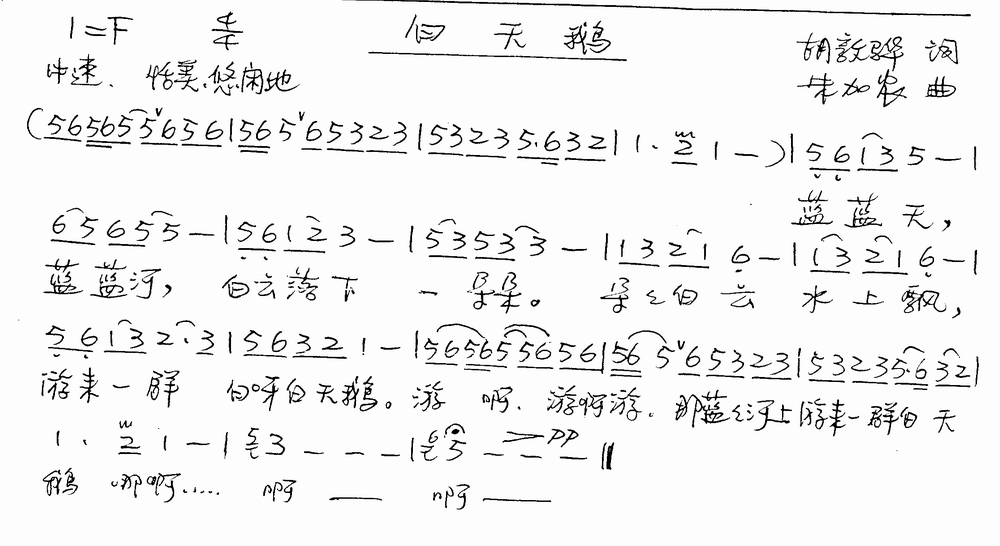 1=F 4/4 白天鹅 胡敦骅 词
中速、恬美、悠闲地 朱加农 曲
(565655ˇ6561|565ˇ65323|53235.632|1.21—)|56135—|
蓝蓝天，
65655—|56123—|53533—|13216—|13216—|
蓝蓝河， 白云落下 一朵朵。 朵々白云 水上飘，
56132.3|56321—|5656556561|565ˇ65323|53235.632|
游来一群 白呀白天鹅。游 啊、游啊游、那蓝々河上游来一群白天
1.21—|53———|65———‖ pp
鹅 哪啊…… 啊 —— 啊 ——